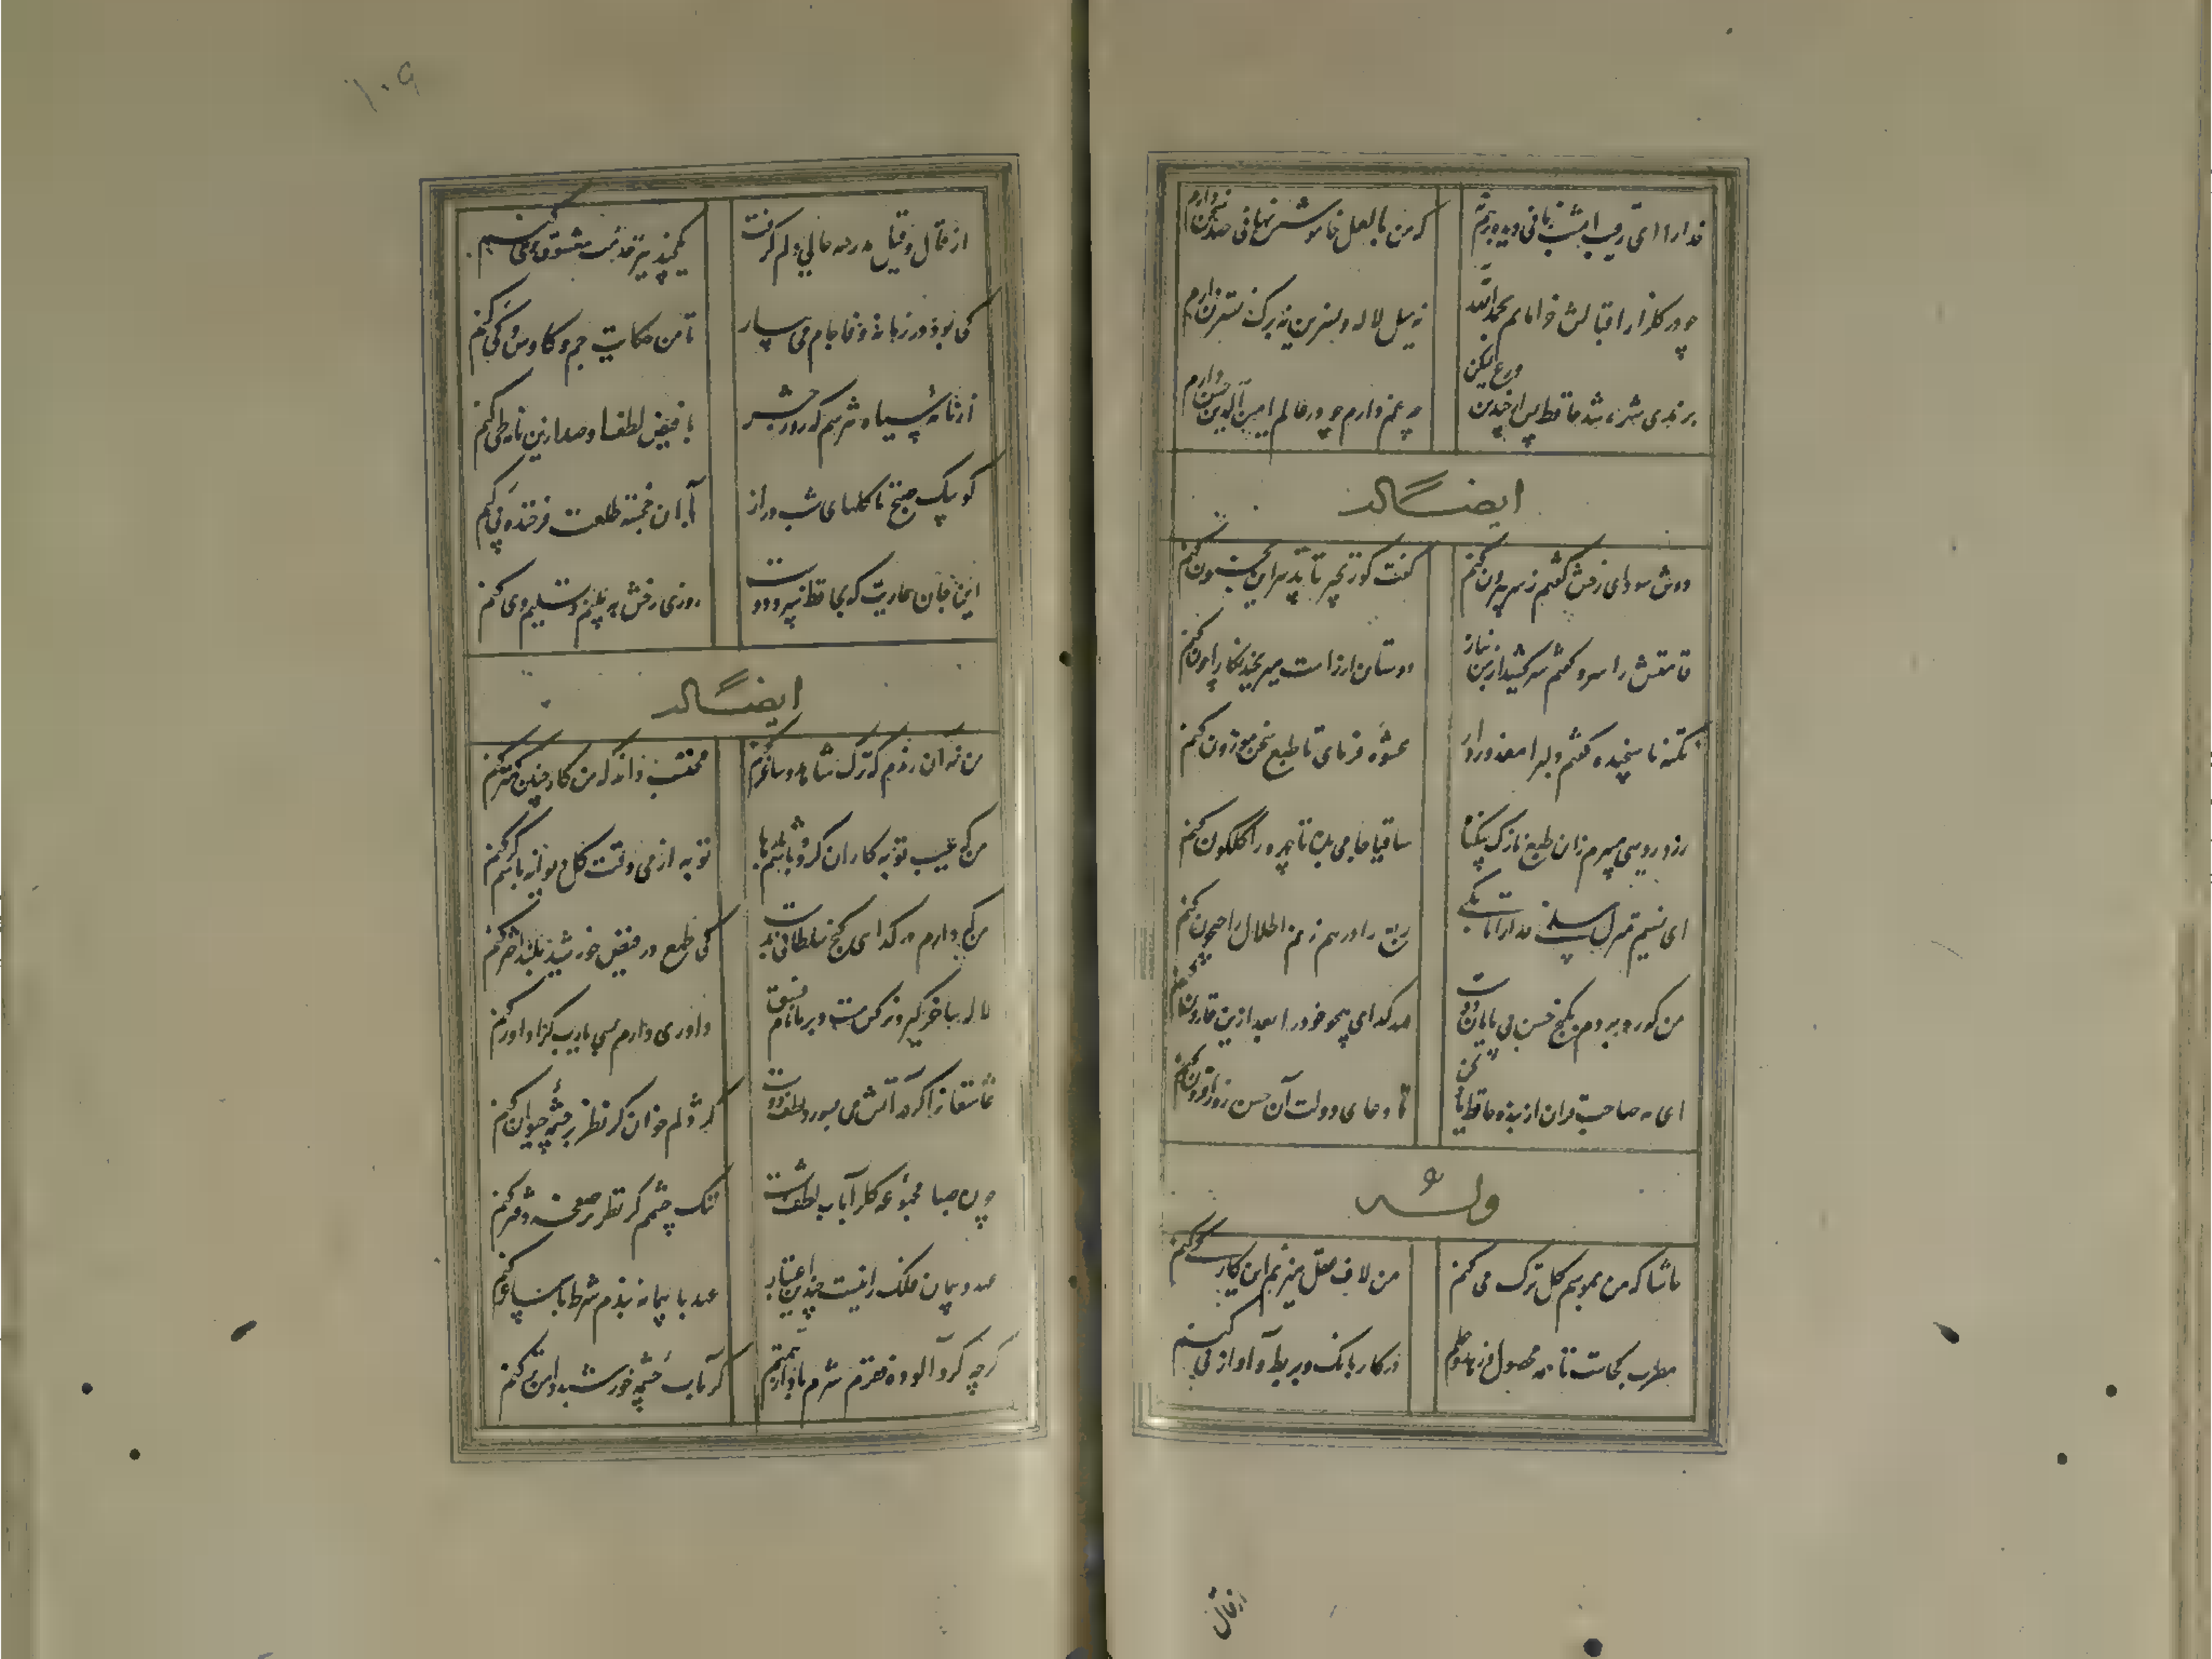 خدا را ای رقیب امشب زمانی دیده بر هم نه
که من با لعل خاموشش نهانی صد سخن دارم
چو در گلزار اقبالش خرامانم بحمد الله
نه میل لاله و نسرین نه برگ نسترن دارم
برندی شهره شد حافظ پس از چندین ورع لیکن
چه غم دارم چو در عالم امین الدین حسن دارم
ایضاً له
دوش سودای رخش گفتم ز سر بیرون کنم
گفت کو زنجیر تا تدبیر این مجنون کنم
قامتش را سرو گفتم سر کشید از من بناز
دوستان از راست میرنجد نگارم چون کنم
نکته ناسنجیده گفتم دلبرا معذور دار
عشوه فرمای تا طبع سخن موزون کنم
زرد رویی میبرم زان طبع نازک بیگناه
ساقیا جامی بده تا چهره را گلگون کنم
ای نسیم منزل سلمی خدا را تا بکی
ربع را بر هم زنم اطلال را جیحون کنم
من که ره بردم بگنج حسن بی پایان دوست
صد گدای همچو خود را بعد ازین قارون کنم
ای مه صاحب قران از بنده حافظ یاد کن
تا دعای دولت آن حسن روز افزون کنم
وله
حاشا که من بموسم گل ترک می کنم
من لاف عقل میزنم این کار کی کنم
مطرب کجاست تا همه محصول زهد و علم
در کار بانگ بربط و آواز نی کنم
از قال
۱۰۹
از قال و قیل مدرسه حالی دلم گرفت
یکچند نیز خدمت معشوق و می کنم
کی بود در زمانه وفا جام می بیار
تا من حکایت جم و کاوس کی کنم
از نامه سیاه نترسم که روز حشر
با فیض لطف او صد ازین نامه طی کنم
کو پیک صبح تا گلهای شب دراز
با آن خجسته طلعت فرخنده پی کنم
این جان عاریت که بحافظ سپرد دوست
روزی رخش ببینم و تسلیم وی کنم
ایضاً له
من نه آن رندم که ترک شاهد و ساغر کنم
محتسب داند که من کار چنین کمتر کنم
من که عیب توبه کاران کرده باشم بارها
توبه از می وقت گل دیوانه باشم گر کنم
من که دارم در گدایی گنج سلطانی بدست
کی طمع در فیض خورشید بلند اختر کنم
لاله ساغر گیر و نرگس مست و بر ما نام فسق
داوری دارم بسی یارب کرا داور کنم
عاشقان را گر در آتش می پسندد لطف دوست
گر در چشمه حیوان کنم
چون صبا مجموعه گل را بآب لطف شست
تنگ چشمم گر نظر بر صفحه دفتر کنم
عهد و پیمان فلک را نیست چندین اعتبار
عهد با پیمانه بندم شرط با ساغر کنم
گرچه گرد آلوده فقرم شرم باد از همتم
گر بآب چشمه خورشید دامن تر کنم